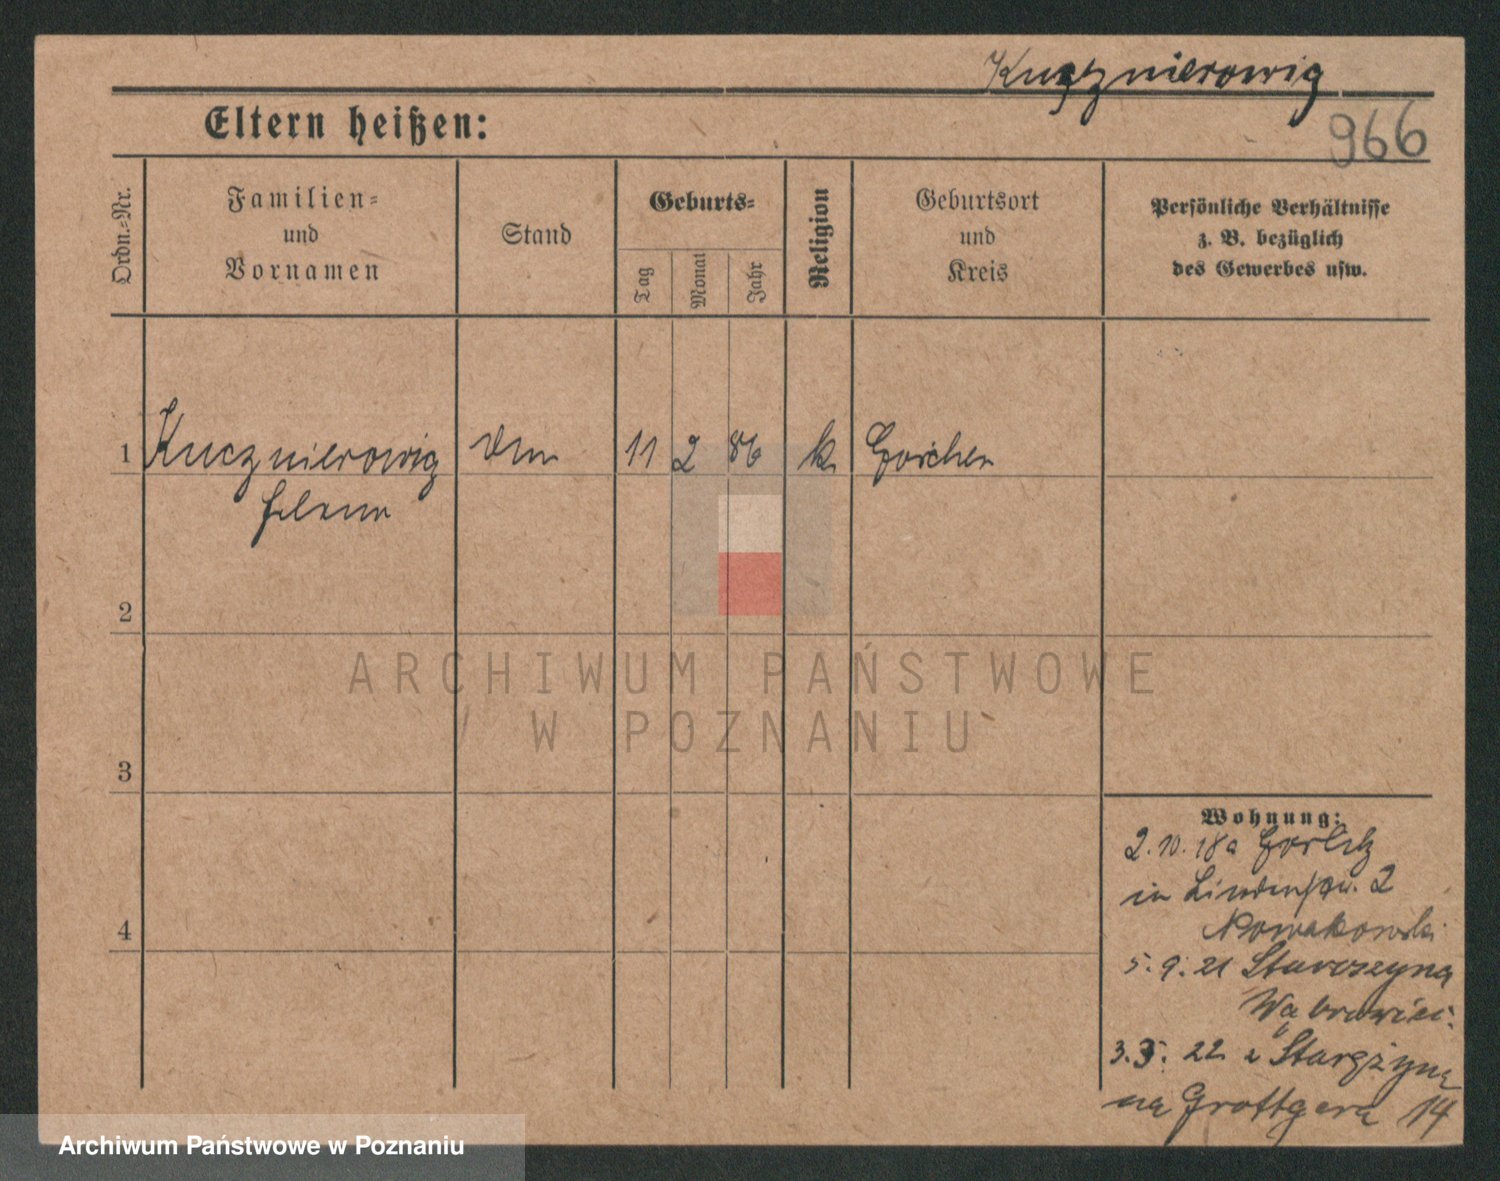 Kucznierowig
966
Eltern heißen:
Ordn.-Nr.
Familien-
und
Vornamen
Stand
Geburts-
Tag
Monat
Jahr
Religion
Geburtsort
und
Kreis
Persönliche Verhältnisse
z. B. bezüglich
des Gewerbes usw.
1 Kucznierowig 11 2 86 k Gorchen
Helene
2
3
4
Wohnung:
2. 10. 18 a
in 2
Nowakowski
5. 9. 21
3. 5. 22
na Grottgera 14
ARCHIWUM PAŃSTWOWE
W POZNANIU
Archiwum Państwowe w Poznaniu